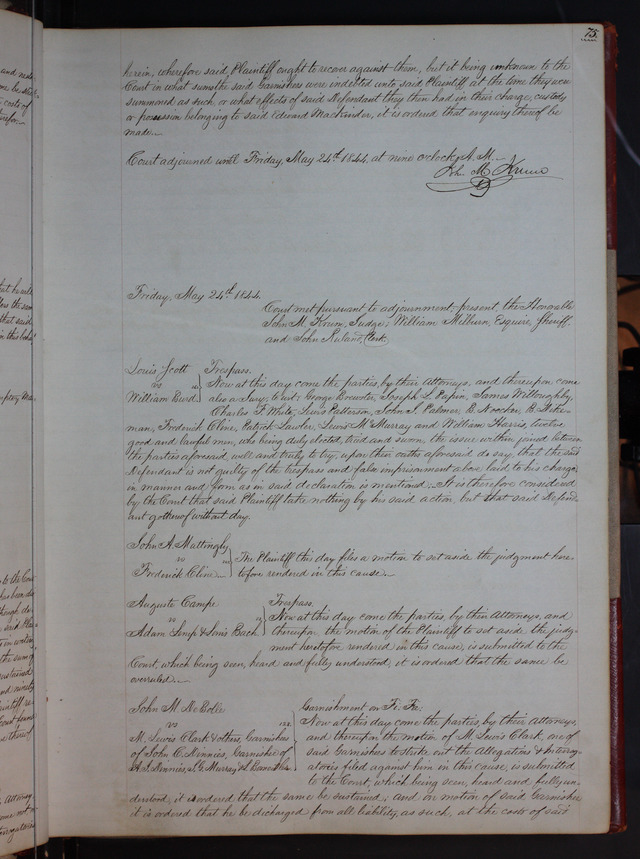 75.
herein, wherefore said Plaintiff ought to recover against them, but it being unknown to the
Court in what sums the said Garnishees were indebted unto said Plaintiff at the time they were
summoned as such, or what effects of said Defendant they then had in their charge, custody
or possession belonging to said Edward MacKinder, it is ordered that enquiry thereof be
made.
Court adjourned until Friday, May 24th 1844, at nine o'clock, A. M.
John M. Krum
Friday, May 24th 1844.
Court met pursuant to adjournment, present the Honorable
John M. Krum, Judge; William Milburn, Esquire, Sheriff
and John Ruland, Clerk.
Louis Scott
vs
William Burd.
Trespass.
Now at this day come the parties, by their Attorneys, and thereupon, come
also a Jury, to wit: George Brewster, Joseph L. Papin, James Willoughby,
Charles F. White, Lewis Patterson, John S. Palmer, B.
man, Frederick Cline, Patrick Lawler, Lewis McMurray and William Harris, twelve
good and lawful men, who being duly elected, tried and sworn, the issue within joined between
the parties aforesaid, well and truly to try, upon their oaths aforesaid do say, that the said
Defendant is not guilty of the trespass and false imprisonment above laid to his charge,
in manner and form as in said declaration is mentioned; It is therefore considered
by the Court that said Plaintiff take nothing by his said action, but that said Defend-
ant go thereof without day.
John A. Mattingly
vs
Frederick Cline
The Plaintiff this day files a motion to set aside the judgment here-
tofore rendered in this cause.
Auguste Campe
vs
Adam Lemp & Louis Bach
Trespass.
Now at this day come the parties, by their Attorneys, and
thereupon the motion of the Plaintiff to set aside the judg-
ment heretofore rendered in this cause, is submitted to the
Court, which being seen, heard and fully understood, it is ordered that the same be
overruled.
John M.
vs
M. Lewis Clark & others, Garnishees
of John C. Dinnies, Garnishee of
Garnishment on Fi: Fa:
Now at this day come the parties, by their Attorneys,
and thereupon the motion of M. Lewis Clark, one of
said Garnishees to strike out the Allegations & Interrog-
atories filed against him in this cause, is submitted
to the Court, which being seen, heard and fully un-
derstood, it is ordered that the same be sustained; and on motion of said Garnishee
it is ordered that he be discharged from all liability, as such, at the costs of said